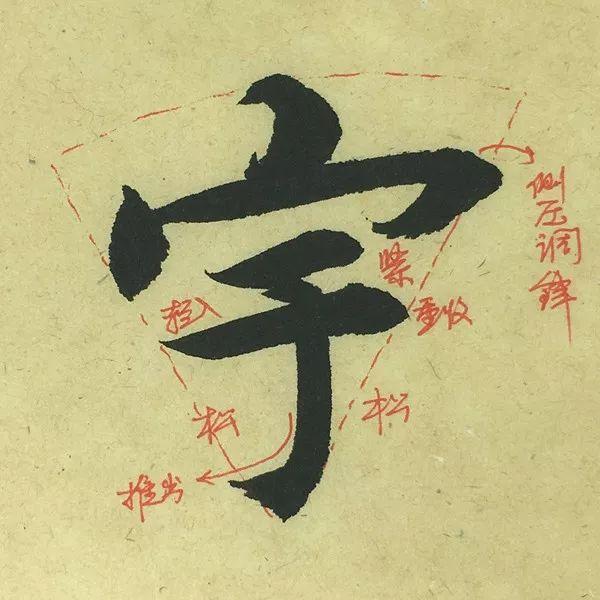 字
侧压调锋
紧
重收
轻入
松
松
推出